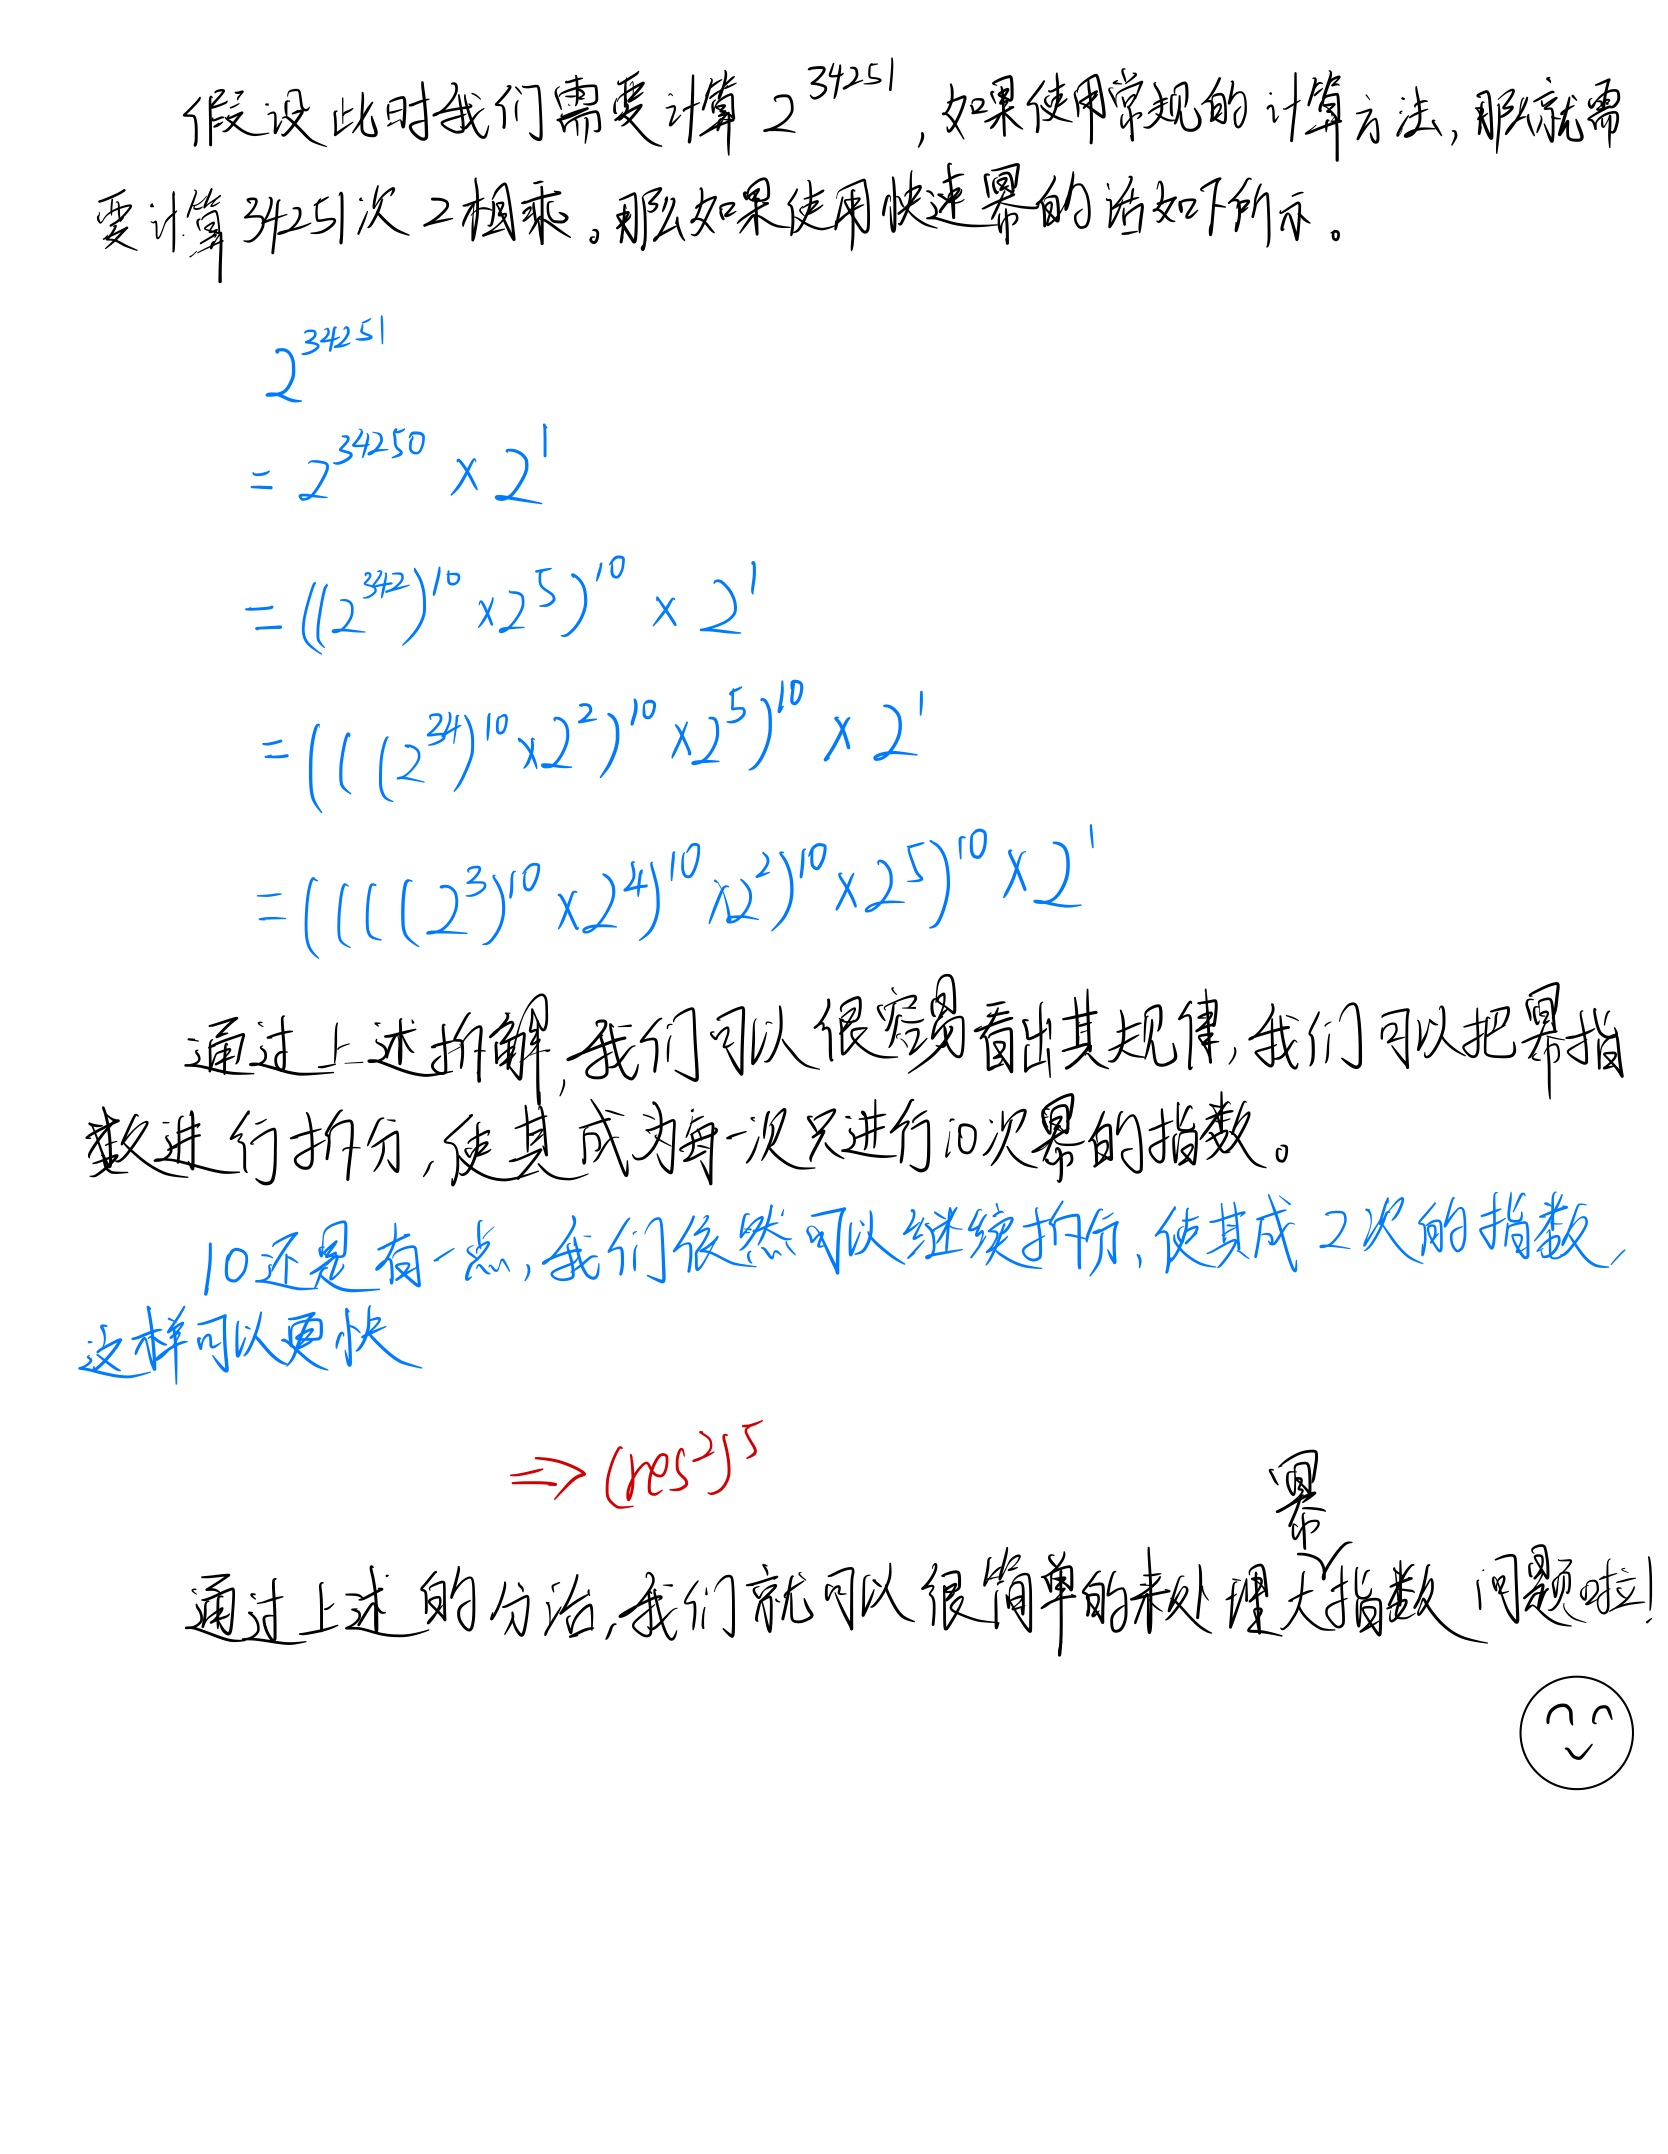 假设此时我们需要计算 2^34251，如果使用常规的计算方法，那么就需
要计算34251次 2相乘。那么如果使用快速幂的话如下所示。
2^34251
= 2^34250 × 2^1
= ((2^342)^10 ×2^5)^10 × 2^1
= (((2^34)^10 ×2^2)^10 ×2^5)^10 × 2^1
= ((((2^3)^10 ×2^4)^10 ×2^2)^10 ×2^5)^10 × 2^1
通过上述拆解，我们可以很容易看出其规律，我们可以把幂指
数进行拆分，使其成为每一次只进行10次幂的指数。
10还是有一点，我们依然可以继续拆分，使其成 2次的指数，
这样可以更快
⇒ (res^2)^5
幂
通过上述的分治，我们就可以很简单的来处理大指数 问题啦！